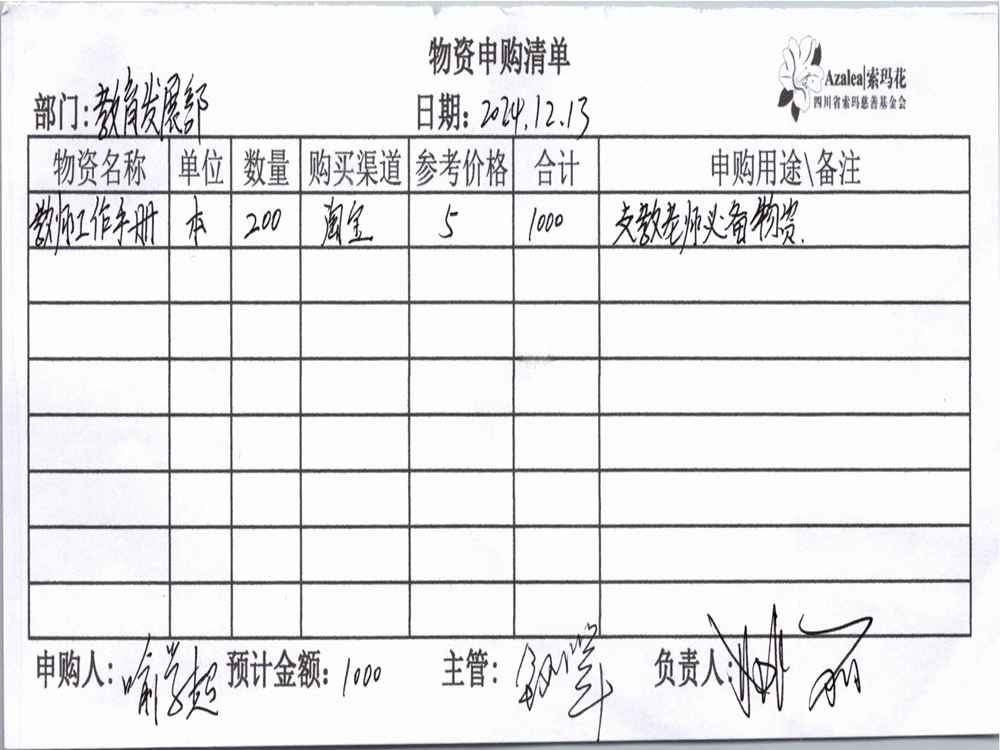 物资申购清单
Azalea|索玛花
四川省索玛慈善基金会
部门:教育发展部 日期:2024.12.13
物资名称 单位 数量 购买渠道 参考价格 合计 申购用途\备注
教师工作手册 本 200 淘宝 5 1000 支教老师必备物资.
申购人:喻学超 预计金额:1000 主管: 负责人: